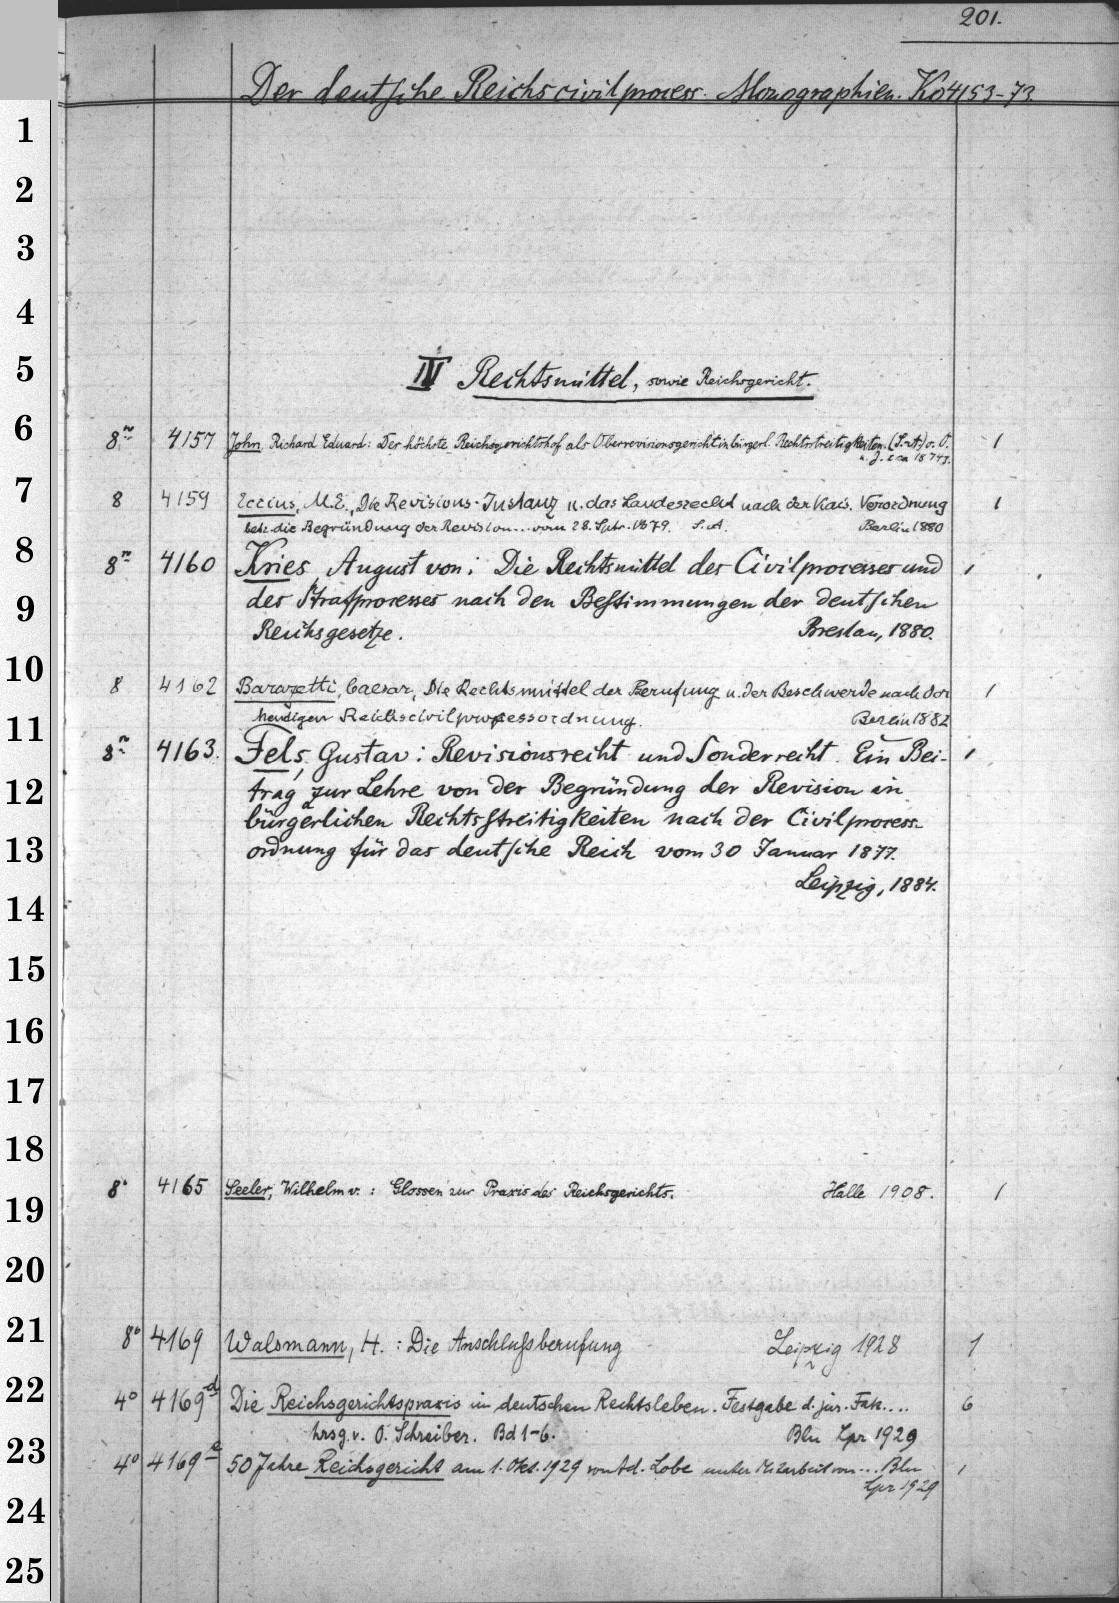 201.
Der deutsche Reichscivilprocess. Monographien. Ko 4153-73.
1
2
3
4
IV Rechtsmittel, sowie Reichsgericht.
5
6
8° 4157 John, Richard Eduard: Der höchste Reichsgerichtshof als Oberrevisionsgericht in bürgerl. Rechtsstreitigkeiten. (S.-A.) o. O. 1
u. J. 
7
8 4159 Eccius, M.E., Die Revisions-Instanz u. das Landesrecht nach der Kais. Verordnung 1
betr. die Begründung der Revision... vom 28. Sptr. 1879. S.A. Berlin 1880
8
8° 4160 Kries, August von: Die Rechtsmittel des Civilprocesses und 1
9
des Strafprocesses nach den Bestimmungen der deutschen
Reichsgesetze. Breslau, 1880.
10
8 4162 Barazetti, Caesar, Die Rechtsmittel der Berufung u. der Beschwerde nach der 1
heutigen Reichscivilprozessordnung. Berlin 1882
11
8° 4163. Fels, Gustav: Revisionsrecht und Sonderrecht. Ein Bei- 1
12
trag zur Lehre von der Begründung der Revision in
bürgerlichen Rechtsstreitigkeiten nach der Civilprocess-
13
ordnung für das deutsche Reich vom 30 Januar 1877.
Leipzig, 1884.
14
15
16
17
18
8° 4165 Seeler, Wilhelm v.: Glossen zur Praxis des Reichsgerichts. Halle 1908. 1
19
20
21
8° 4169 Walsmann, H.: Die Anschlußberufung Leipzig 1928 1
22
4° 4169d Die Reichsgerichtspraxis im deutschen Rechtsleben. Festgabe d. jur. Fak.... 6
hrsg. v. O. Schreiber. Bd 1-6. Bln Lpz 1929
23
4° 4169e 50 Jahre Reichsgericht am 1. Okt. 1929 von Ad. Lobe unter Mitarbeit von... Bln 1
Lpz 1929
24
25